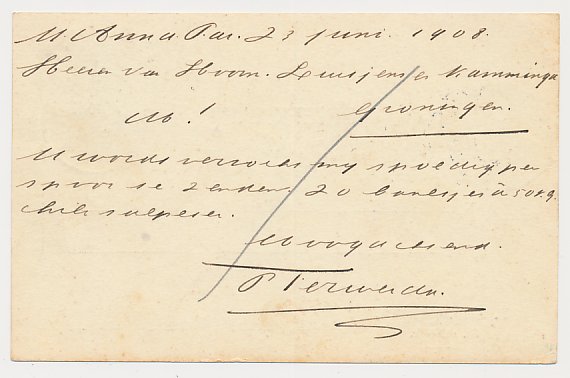 Anna Par. 23 juni. 1908.
Heeren Van Hoorn. Luitjens en Kamminga
Groningen.
M !
U wordt verzocht mij spoedig per
spoor te zenden 20 baaltjes à 50 Kg.
chilisalpeter.
Hoogachtend.
P Terwerda.